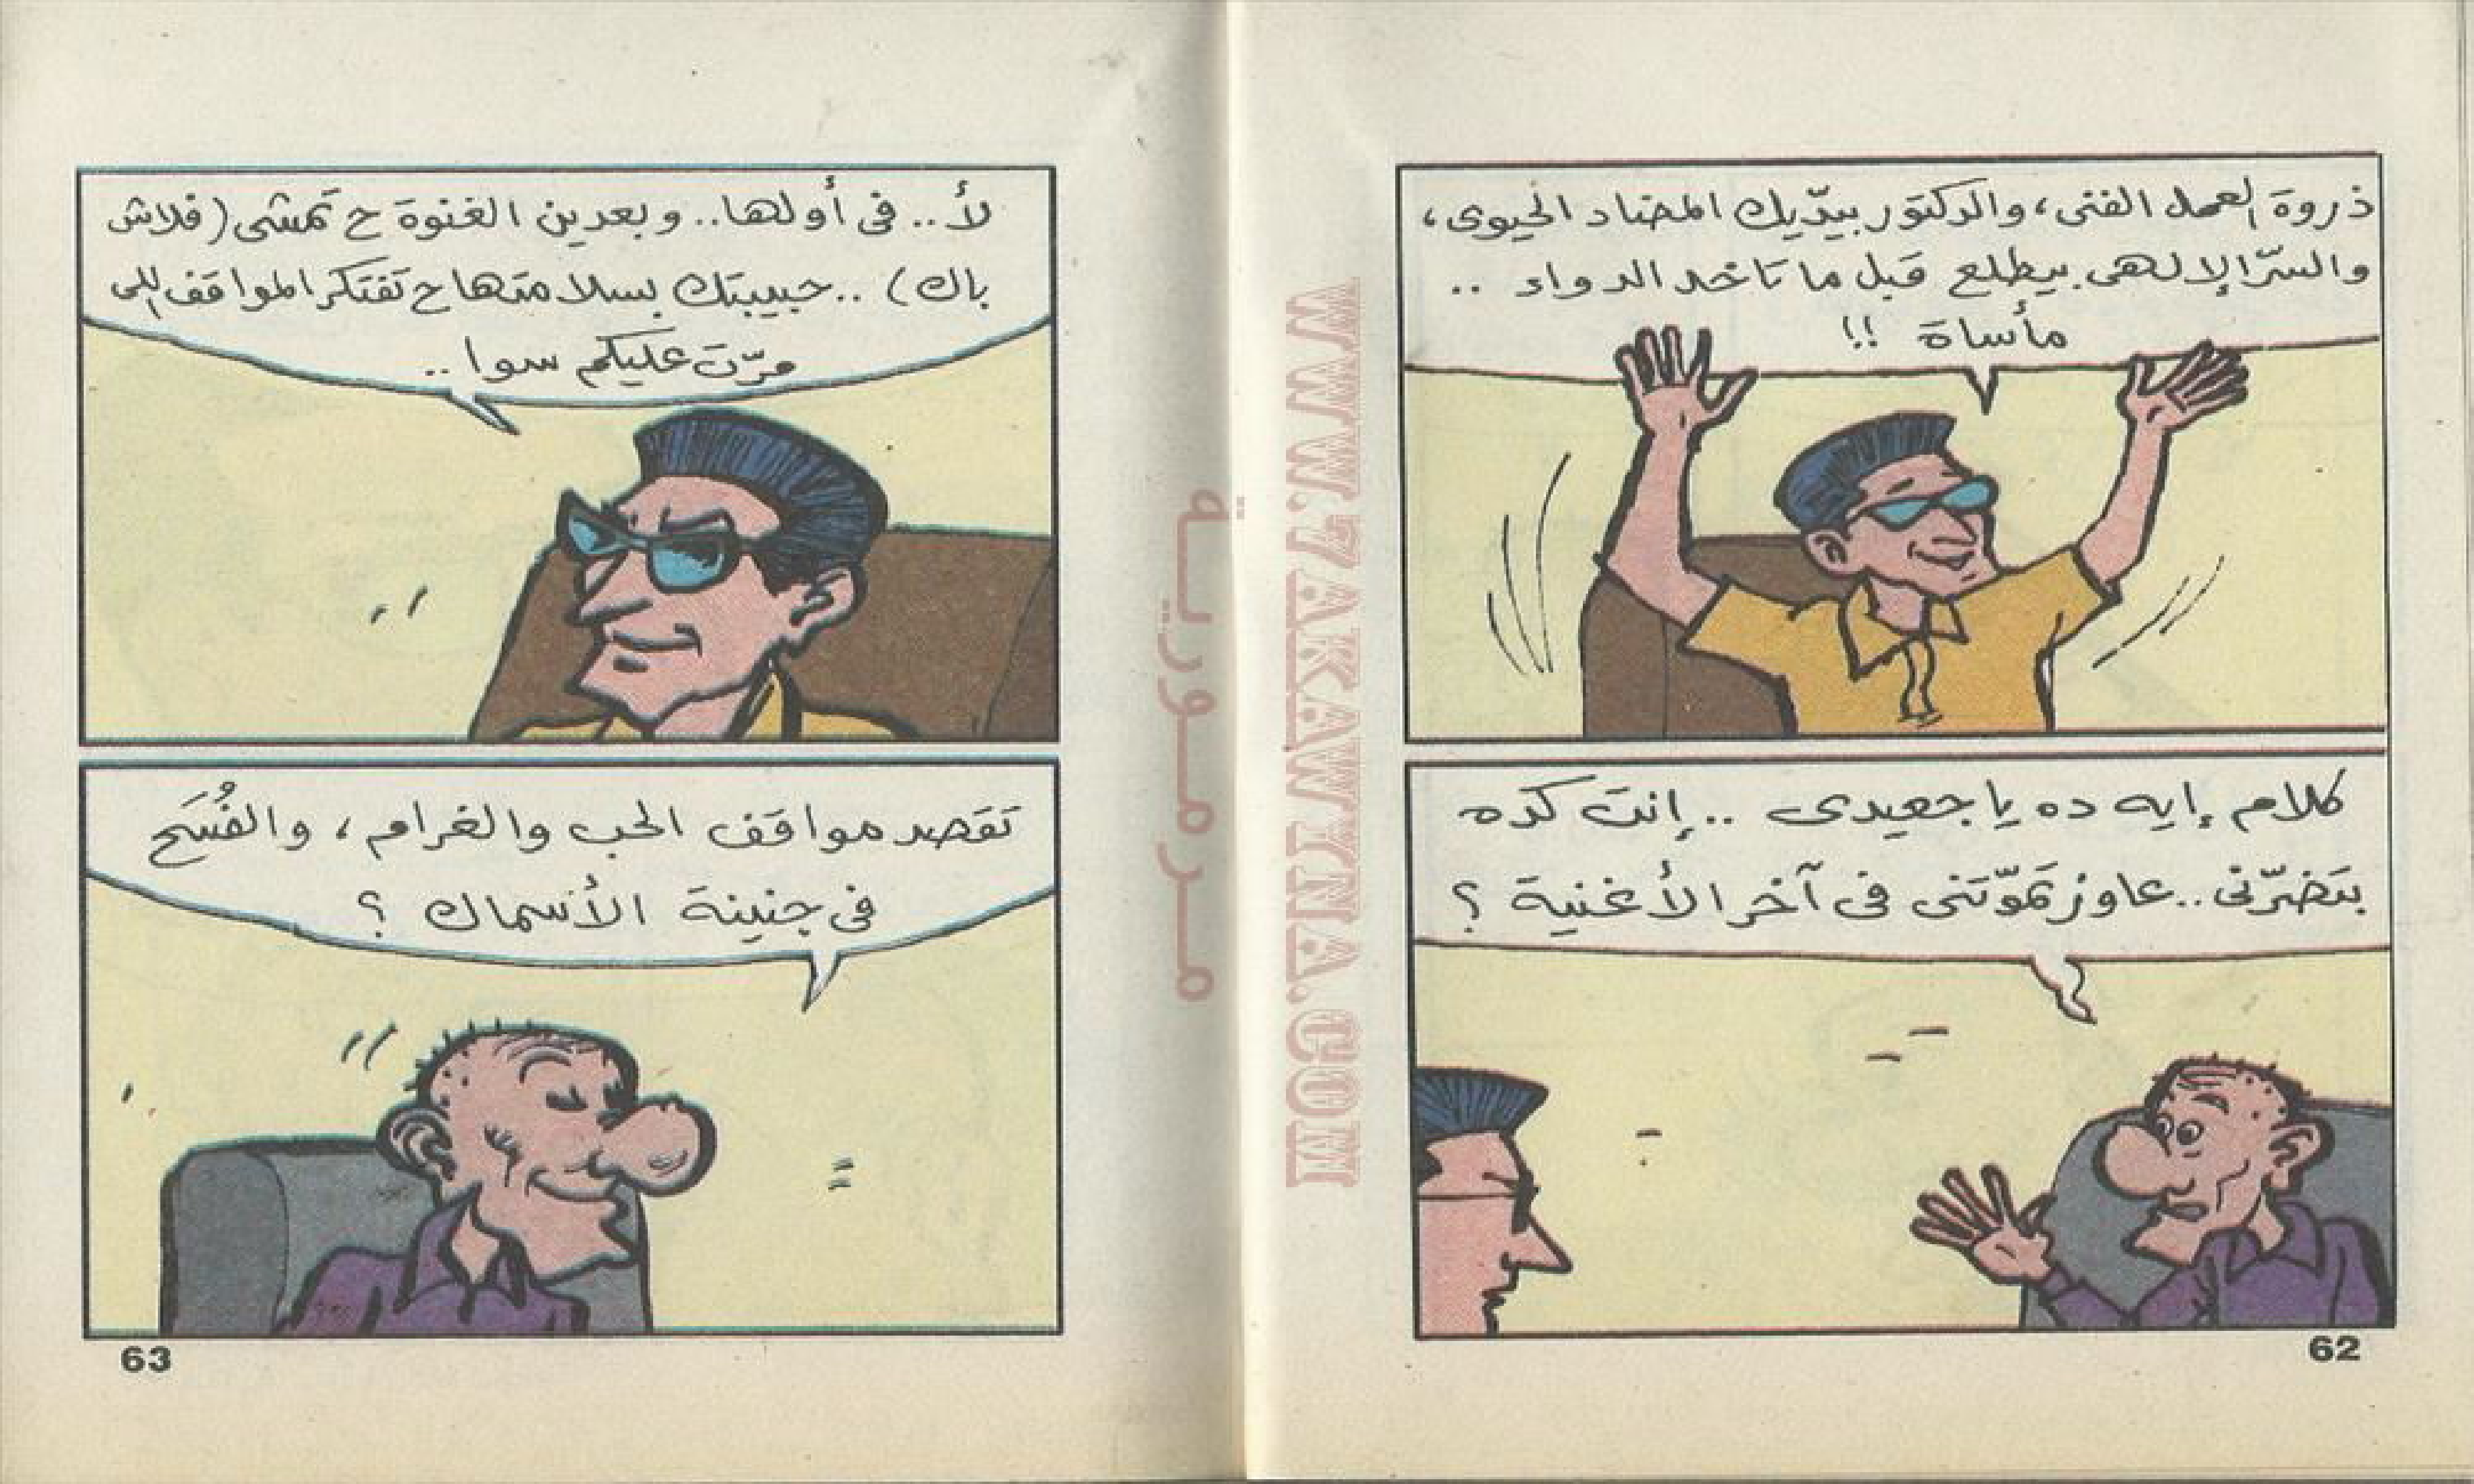 ذروة العمل الفنى، والدكتور بيدّيك المضاد الحيوى،
والسّر الإلهى بيطلع قبل ما تاخد الدواء ..
مأساة !!
كلام إيه ده يا جعيدى .. إنت كده
بتضرّنى .. عاوز تموّتنى فى آخر الأغنية ؟
62
لأ .. فى أولها .. وبعدين الغنوة ح تمشى (فلاش
باك) .. حبيبتك بسلامتها ح تفتكر المواقف اللى
مرّت عليكم سوا ..
تقصد مواقف الحب والغرام، والفُسَح
فى جنينة الأسماك ؟
63
مرمورية